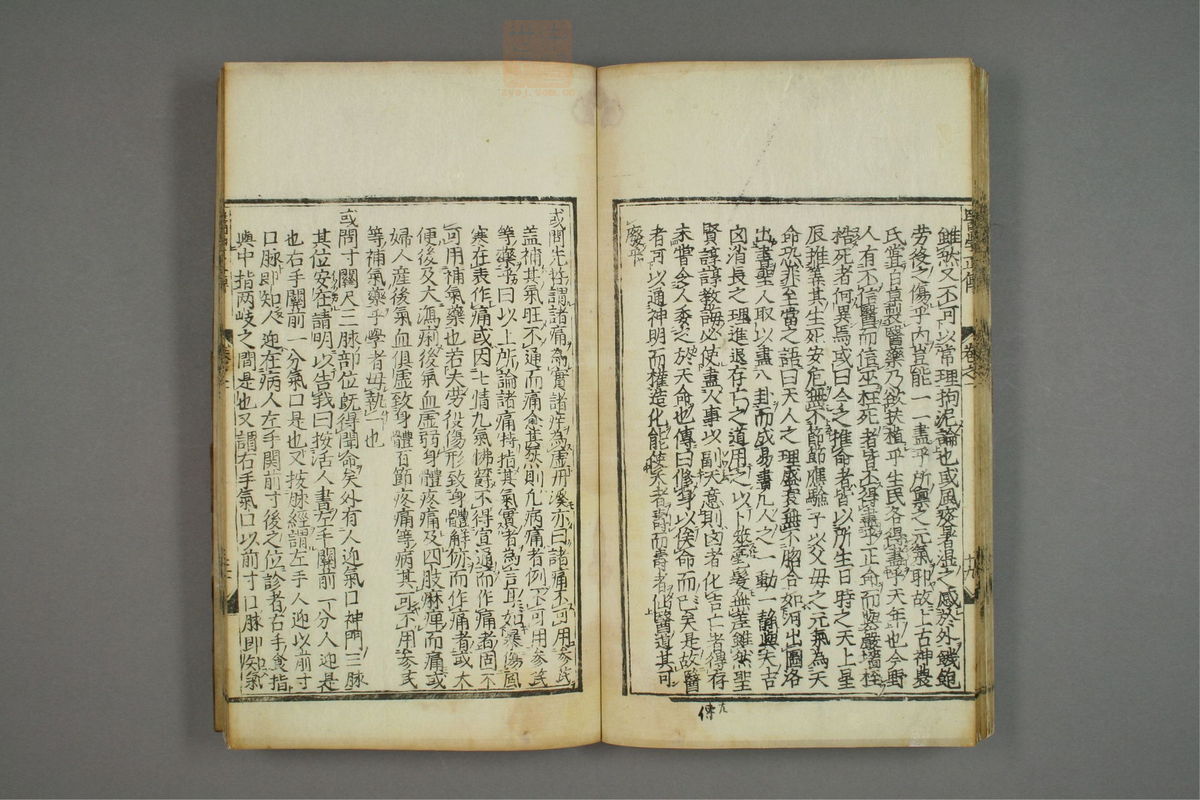 雖然又不可以常理拘泥論也或風寒暑濕之感於外饑飽
勞役之傷乎内豈能一一盡乎所稟之元氣耶故上古神農
氏嘗百草製醫藥乃欲扶植乎生民各得盡乎天年也今野
人有不信醫而信巫枉死者皆不得盡乎正命而與巖墻桎
梏死者何異焉或曰今之推命者皆以所生日時之天上星
辰推筭其生死安危無不節節應驗子以父母之元氣為天
命恐非至當之語曰天人之理盛衰無不脗合如河出圖洛
出書聖人取以畫八卦而成易書凡人之一動一靜與夫吉
凶消長之理進退存亡之道用之以卜筮毫髮無差雖然聖
賢諄諄教誨必使盡人事以副天意則凶者化吉亡者得存
未嘗令人委之於天命也傳曰修身以俟命而已矣是故醫
者可以通神明而權造化能使夭者壽而壽者仙醫道其可
廢乎
醫學正傳 卷之一
傳
或問先哲謂諸痛為實諸痒為虛丹溪亦曰諸痛不可用參芪
盖補其氣旺不通而痛愈甚然則凡病痛者例不可用參芪
等藥乎曰以上所論諸痛特指其氣實者為言耳如暴傷風
寒在表作痛或因七情九氣怫鬱不得宣通而作痛者固不
可用補氣藥也若夫勞役傷形致身體解㑊而作痛者或大
便後及大瀉痢後氣血虛弱身體疼痛及四肢麻痺而痛或
婦人産後氣血俱虛致身體百節疼痛等病其可不用參芪
等補氣藥乎學者毋執一也
或問寸關尺三脉部位既得聞命矣外有人迎氣口神門三脉
其位安在請明以告我曰按活人書左手關前一分人迎是
也右手關前一分氣口是也又按脉經謂左手人迎以前寸
口脉即知人迎在病人左手関前寸後之位診者右手食指
與中指两岐之間是也又謂右手氣口以前寸口脉即知氣